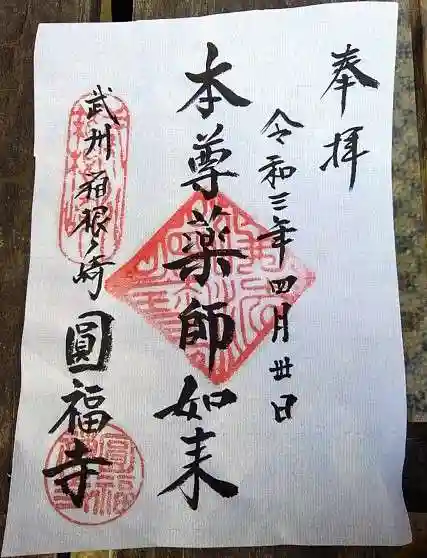 奉拝
令和三年四月丗日
本尊薬師如来
武州箱根ヶ崎
圓福寺